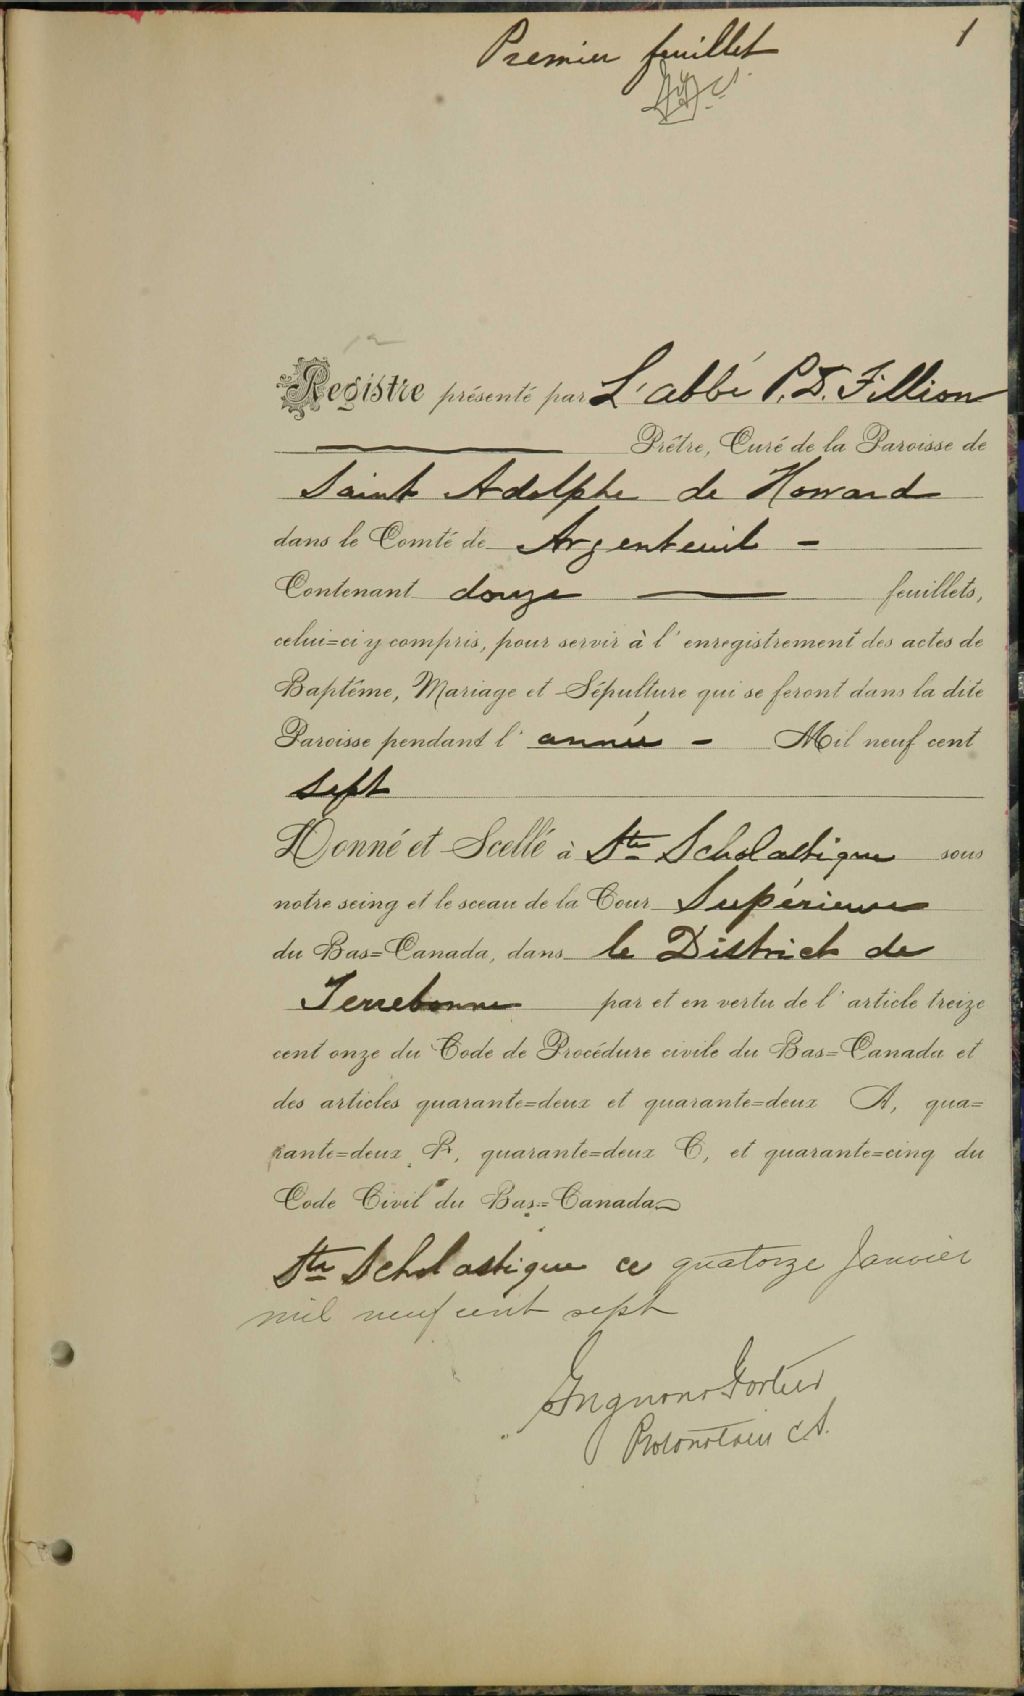 Premier feuillet
1
Registre présenté par L'abbé P. D. Fillion
Prêtre, Curé de la Paroisse de
Saint Adolphe de Howard
dans le Comté de Argenteuil -
Contenant douze — feuillets,
celui=ci y compris, pour servir à l'enregistrement des actes de
Baptême, Mariage et Sépulture qui se feront dans la dite
Paroisse pendant l'année - Mil neuf cent
sept
Donné et Scellé à Ste Scholastique sous
notre seing et le sceau de la Cour Supérieure
du Bas=Canada, dans le District de
Terrebonne par et en vertu de l'article treize
cent onze du Code de Procédure civile du Bas=Canada et
des articles quarante=deux et quarante=deux A, qua=
rante=deux B, quarante=deux C, et quarante=cinq du
Code Civil du Bas=Canada
Ste Scholastique ce quatorze Janvier
mil neuf cent sept
Grignon & Fortier
Protonotaire C.S.